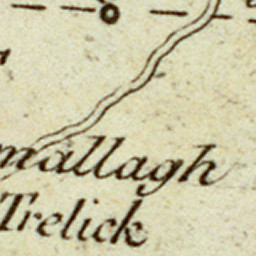 mallagh
Trelick